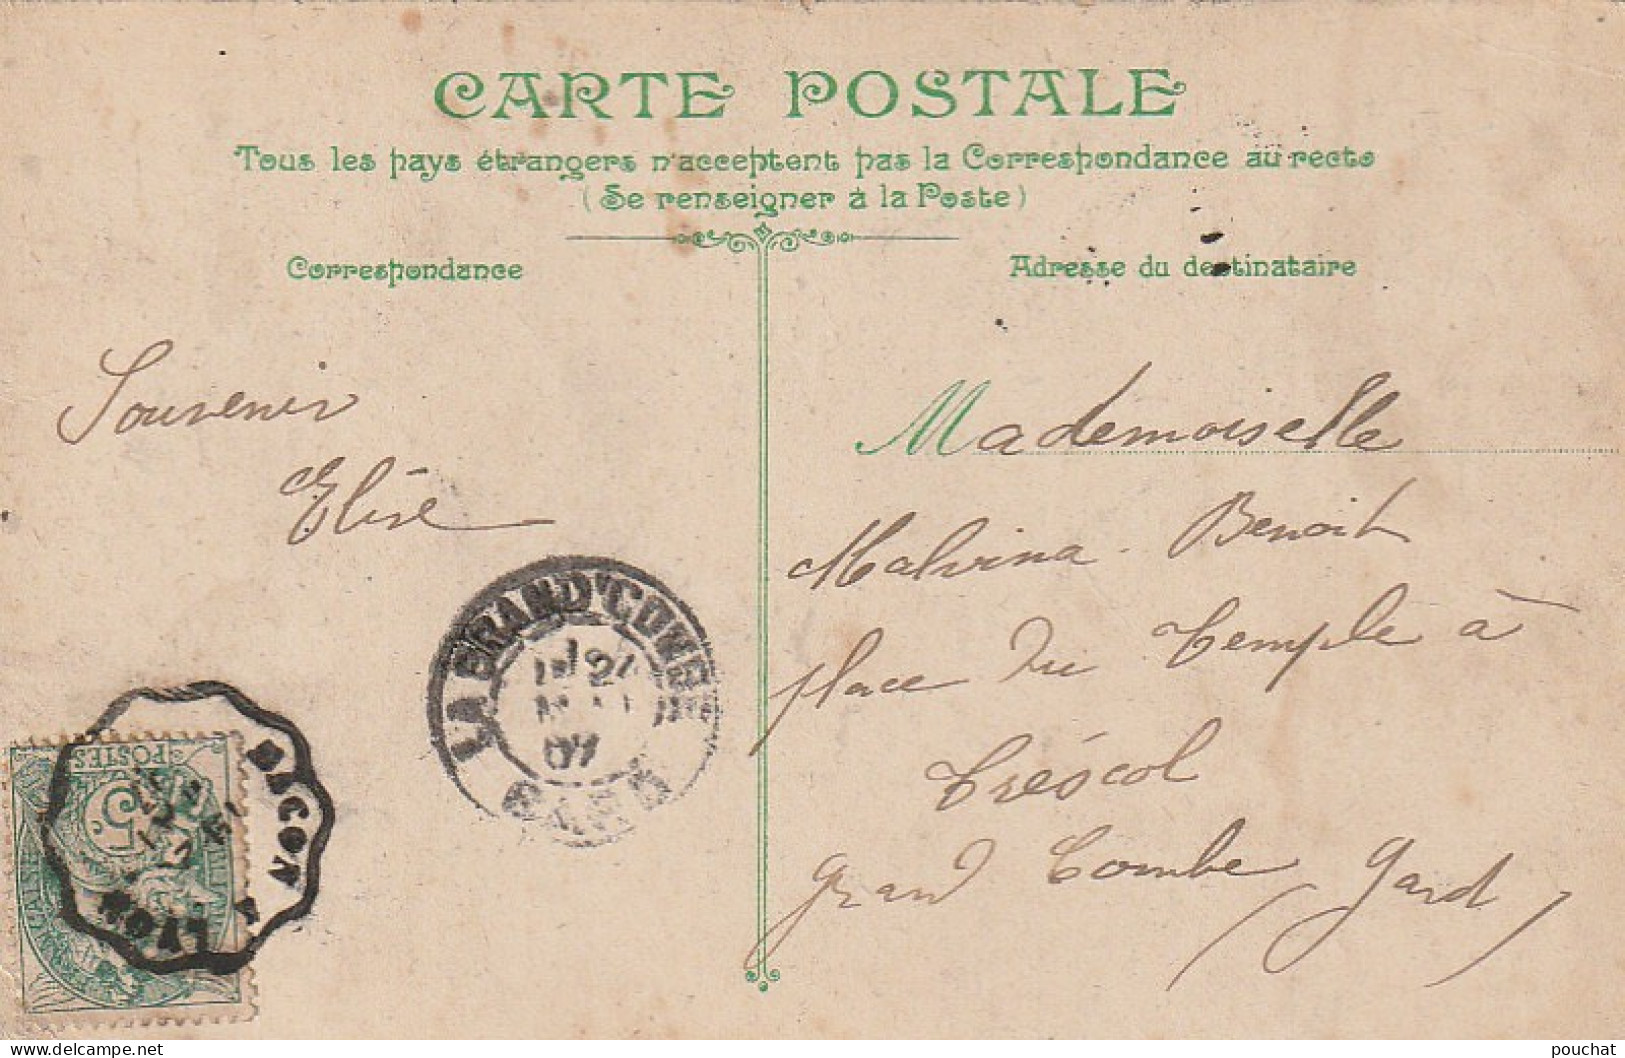 CARTE POSTALE
Tous les pays étrangers n'acceptent pas la Correspondance au recto
(Se renseigner à la Poste)
Correspondance
Adresse du destinataire
Souvenir
Elise
Mademoiselle
Malvina Benoit
place du Temple à
Tréscol
Grand Combe
(Gard)
LA GRAND'COMBE
GARD
07
MACON A LYON
POSTES
5c
pouchat